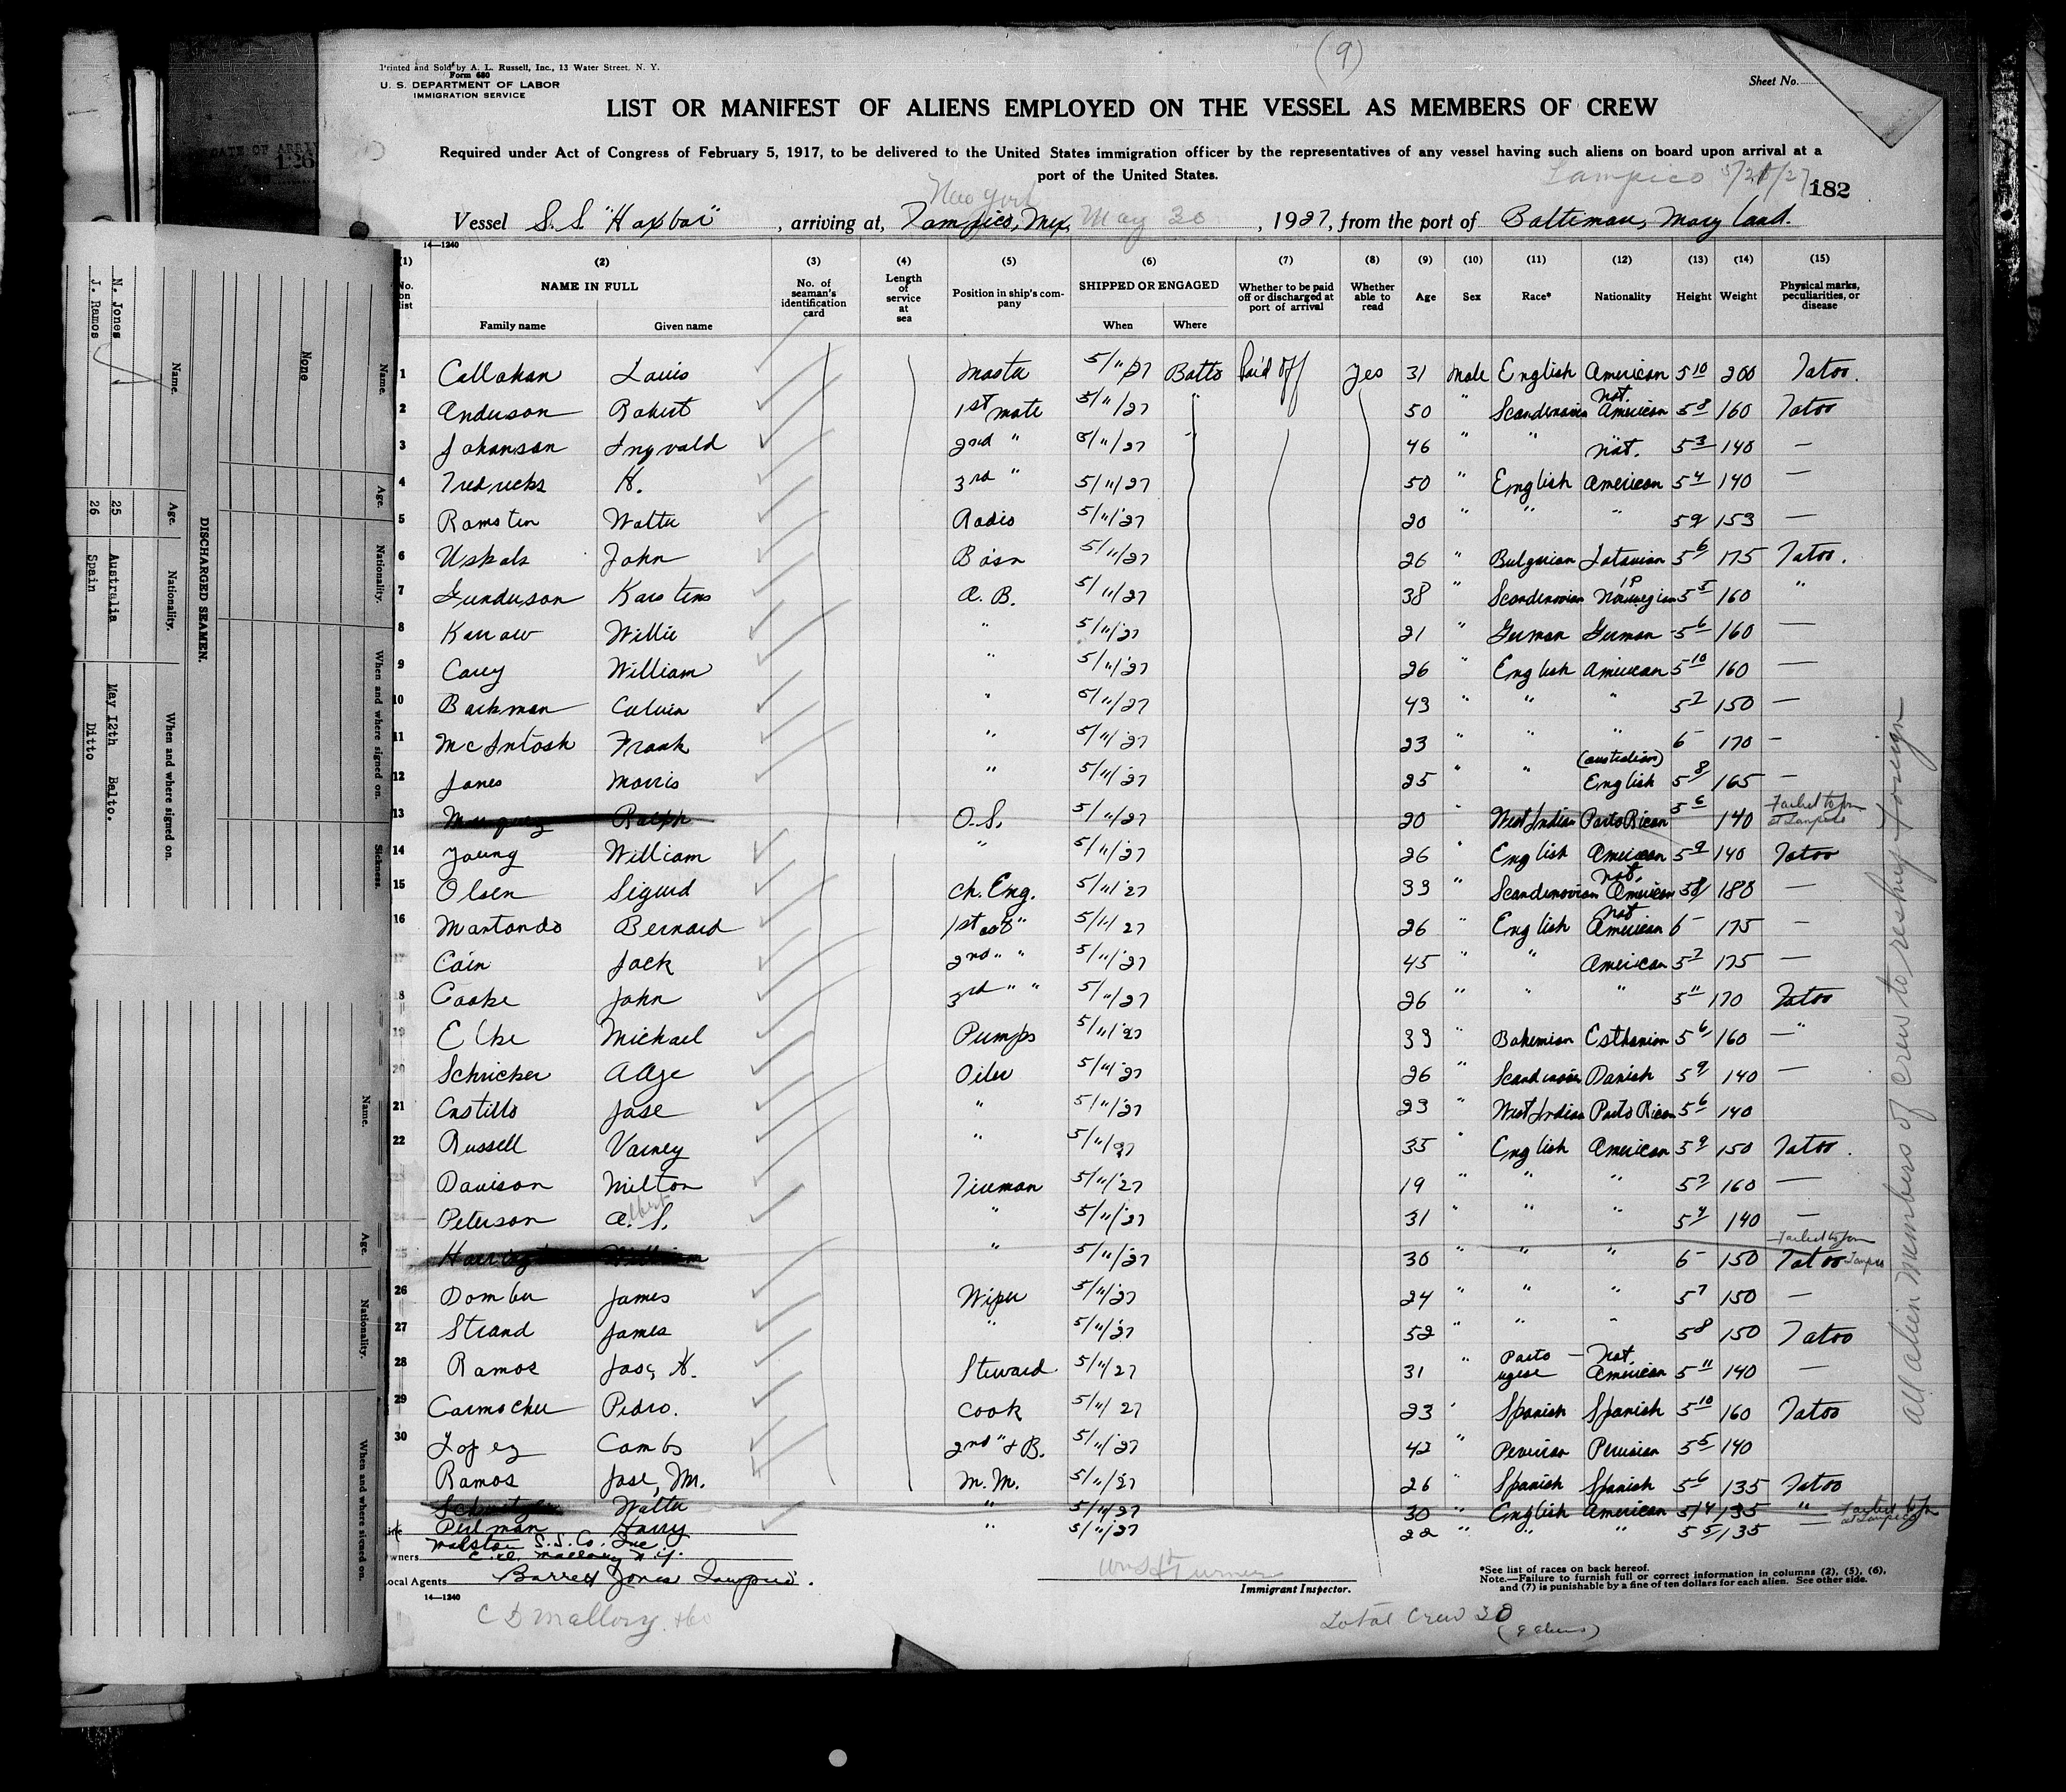 (9)
Printed and Sold by A. L. Russell, Inc., 13 Water Street, N. Y.
Form 680
U. S. DEPARTMENT OF LABOR
IMMIGRATION SERVICE
Sheet No.
LIST OR MANIFEST OF ALIENS EMPLOYED ON THE VESSEL AS MEMBERS OF CREW
Required under Act of Congress of February 5, 1917, to be delivered to the United States immigration officer by the representatives of any vessel having such aliens on board upon arrival at a
port of the United States.
Tampico 5/21/27 182
New York
Vessel S.S. "Haxbar", arriving at, Tampico, Mex. May 30, 1927, from the port of Baltimore, Maryland.
14—1240
(1) (2) (3) (4) (5) (6) (7) (8) (9) (10) (11) (12) (13) (14) (15)
No. on list NAME IN FULL Family name Given name No. of seaman's identification card Length of service at sea Position in ship's company SHIPPED OR ENGAGED When Where Whether to be paid off or discharged at port of arrival Whether able to read Age Sex Race* Nationality Height Weight Physical marks, peculiarities, or disease
1 Callahan Louis Master 5/11/27 Balto Paid Off Yes 31 Male English American 5 10 200 Tatoo.
2 Anderson Robert 1st mate 5/11/27 " 50 " Scandinavian Nat. American 5 8 160 Tatoo
3 Johanson Ingvald 2nd " 5/11/27 " 46 " " " Nat. 5 3 140 —
4 Fredricks H. 3rd " 5/11/27 50 " English American 5 4 140 —
5 Ramsten Walter Radio 5/11/27 20 " " " 5 9 153 —
6 Uskals John Bosn 5/11/27 26 " Bulgarian Latavian 5 6 175 Tatoo.
7 Gunderson Karstens A. B. 5/11/27 38 " Scandinavian Norwegian 5 5 160 "
8 Karrow Willie " 5/11/27 21 " German German 5 6 160 —
9 Carey William " 5/11/27 26 " English American 5 10 160 —
10 Backman Calvin " 5/11/27 43 " " " 5 7 150 —
11 McIntosh Frank " 5/11/27 23 " " " 6 - 170 —
12 Jones Morris " 5/11/27 25 " " (Australian) English 5 8 165 —
13 Ralph O.S. 5/11/27 20 " West Indian Porto Rican 5 6 140 Failed to join at Tampico
14 Young William " 5/11/27 26 " English American 5 9 140 Tatoo
15 Olsen Sigurd Ch. Eng. 5/11/27 33 " Scandinavian Nat. American 5 8 180 —
16 Martondo Bernard 1st asst " 5/11/27 26 " English Nat American 6 - 175 —
17 Cain Jack 2nd " " 5/11/27 45 " " American 5 7 175 —
18 Cooke John 3rd " " 5/11/27 26 " " " 5 11 170 Tatoo
19 Elke Michael Pumps 5/11/27 33 " Bohemian Esthonian 5 6 160 — "
20 Schricker Aage Oiler 5/11/27 26 " Scandinavian Danish 5 9 140 —
21 Castillo Jose " 5/11/27 23 " West Indian Porto Rican 5 6 140
22 Russell Varney " 5/11/27 35 " English American 5 9 150 Tatoo.
23 Davison Milton Fireman 5/11/27 19 " " " 5 7 160 —
24 Peterson A. S. " 5/11/27 31 " " " 5 9 140 —
25 William " 5/11/27 30 " " " 6 - 150 Tatoo Failed to join Tampico
26 Domber James Wiper 5/11/27 24 " " " 5 7 150 —
27 Strand James " 5/11/27 52 " " " 5 8 150 Tatoo
28 Ramos Jose, H. Steward 5/11/27 31 " Portougese — Nat. American 5 11 140 —
29 Carmocher Pedro. Cook 5/11/27 23 " Spanish Spanish 5 10 160 Tatoo
30 Lopez Cambs 2nd " & B. 5/11/27 42 " Peruvian Peruvian 5 5 140
Ramos Jose, M. M. M. 5/11/27 26 " Spanish Spanish 5 6 135 Tatoo
Walter " 5/11/27 30 " English American 5 4 135 " Failed to join at Tampico
Perlman Harry " 5/11/27 22 " " " 5 5 135 —
Malston S.S. Co. Inc.
Owners C. D. Mallory N.Y.
Local Agents Barrett Jones Tampico.
14—1240
C D Mallory & Co
Immigrant Inspector.
*See list of races on back hereof.
Note.—Failure to furnish full or correct information in columns (2), (5), (6),
and (7) is punishable by a fine of ten dollars for each alien. See other side.
Total Crew 30
(9 aliens)
All alien members of crew to reship foreign
DISCHARGED SEAMEN.
Name. Age. Nationality. When and where signed on.
N. Jones 25 Australia May 12th Balto.
J. Ramos 26 Spain Ditto
Name. Age. Nationality. When and where signed on. Sickness.
None
Name. Age. Nationality. When and where signed on.
126